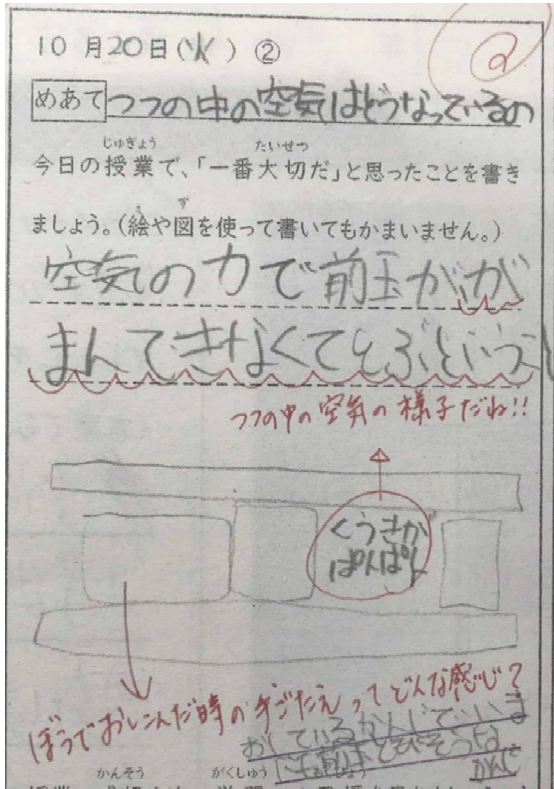 10月20日(火) ②
めあて つつの中の空気はどうなっているの
じゅぎょう たいせつ
今日の授業で、「一番大切だ」と思ったことを書き
え ず
ましょう。(絵や図を使って書いてもかまいません。)
空気の力で前玉ががが
まんできなくてとぶという
つつの中の空気の様子だね!!
くうきが
ぱんぱん
ぼうでおしこんだ時の手ごたえってどんな感じ?
おしているかんじでいいま
にも前玉とびそうな
かんじ
かんそう がくしゅう